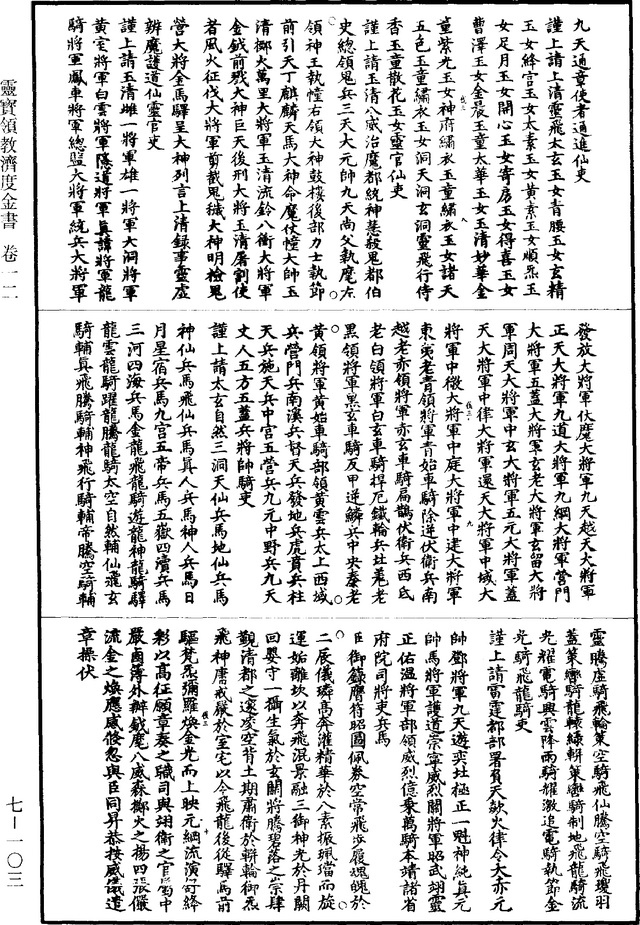 九天通章使者通進仙吏
謹上請上清靈飛太玄玉女青腰玉女玄精
玉女絳宮玉女太素玉女黃素玉女順炁玉
女足月玉女開心玉女寄房玉女得喜玉女
曹澤玉女金晨玉童太華玉女玉清妙華金
童紫光玉女神府繡衣玉童繡衣玉女諸天
五色玉童繡衣玉女洞天洞玄洞靈飛行侍
香玉童散花玉女靈官仙吏
謹上請玉清八威治魔都統神慧殺鬼都伯
史總領鬼兵三天大元帥九天尚父執麾左
領神王執幢右領大神鼓樓後部力士執節
前引天丁麒麟天馬大神命魔仗幢大帥玉
清擲火萬里大將軍玉清流鈴八衝大將軍
金鉞前戮大神巨天後刑大將玉清屠割使
者風火征伐大將軍剪截鬼馘大神明檢鬼
營大將金馬驛呈大神列言上清錄事靈虛
辨魔護道仙靈官吏
謹上請玉清雌一將軍雄一將軍大洞將軍
黃室將軍白雲將軍隱道將軍真諱將軍龍
騎將軍鳳車將軍總監大將軍統兵大將軍
發放大將軍伏魔大將軍九天越天大將軍
正天大將軍九道大將軍九綱大將軍營門
大將軍五蓋大將軍玄老大將軍玄留大將
軍周天大將軍中玄大將軍五元大將軍蓋
天大將軍中律大將軍還天大將軍中域大
將軍中微大將軍中庭大將軍中建大將軍
東夷老青領將軍青始車騎除逆伏衛兵南
越老赤領將軍赤玄車騎扁鵲伏衛兵西氐
老白領將軍白玄車騎捍厄鐵輪兵灶毒老
黑領將軍黑玄車騎反甲逆鱗兵中央秦老
黃領將軍黃始車騎部領黃雲兵太上西域
兵營門兵南溪兵督天兵發地兵虎賁兵柱
天兵施天兵中宮五營兵九元中野兵九天
丈人五方五蓋兵將帥騎吏
謹上請太玄自然三洞天仙兵馬地仙兵馬
神仙兵馬飛仙兵馬真人兵馬神人兵馬日
月星宿兵馬九宮五帝兵馬五嶽四瀆兵馬
三河四海兵馬金龍飛龍騎遊龍神龍騎驛
龍雲龍騎躍龍騰龍騎太空自然輔仙飛玄
騎輔真飛騰騎輔神飛行騎輔帝騰空騎輔
靈騰座騎飛輪策空騎飛仙騰空騎飛瓊羽
蓋策轡騎龍轅綠軿策轡騎制地飛龍騎流
光耀電騎興雲降雨騎耀激追電騎執節金
光騎飛龍騎吏
謹上請雷霆都部署負天歘火律令大赤元
帥鄧將軍九天遊奕灶極正一魁神純真元
帥馬將軍護道崇寧威烈關將軍昭武翊靈
正佑溫將軍部領威烈億乘萬騎本靖諸省
府院司將吏兵馬
臣御籙膺符昭國佩券空常飛步履瑰魄於
二辰儀璘高奔灌精華於八素振珮璫而旋
運姤離坎以奔飛混景融三御神光於丹闕
回嬰守一攝生氣於玄關將騰碧落之宗肆
覲清都之邃凌空背土期肅衛於軿輪御炁
飛神庸戒嚴於室宅以今飛龍後從驛馬前
驅梵炁彌羅煥金光而上映元綱流演勾絳
彩以高征願章奏之職司與翊衛之官屬中
嚴鹵簿外辦鉞麾八威森擲火之揚四張儼
流金之煥應感倏忽與臣同昇恭按威儀遣
章操伏
靈寶領教濟度金書 卷一二
七—一〇三